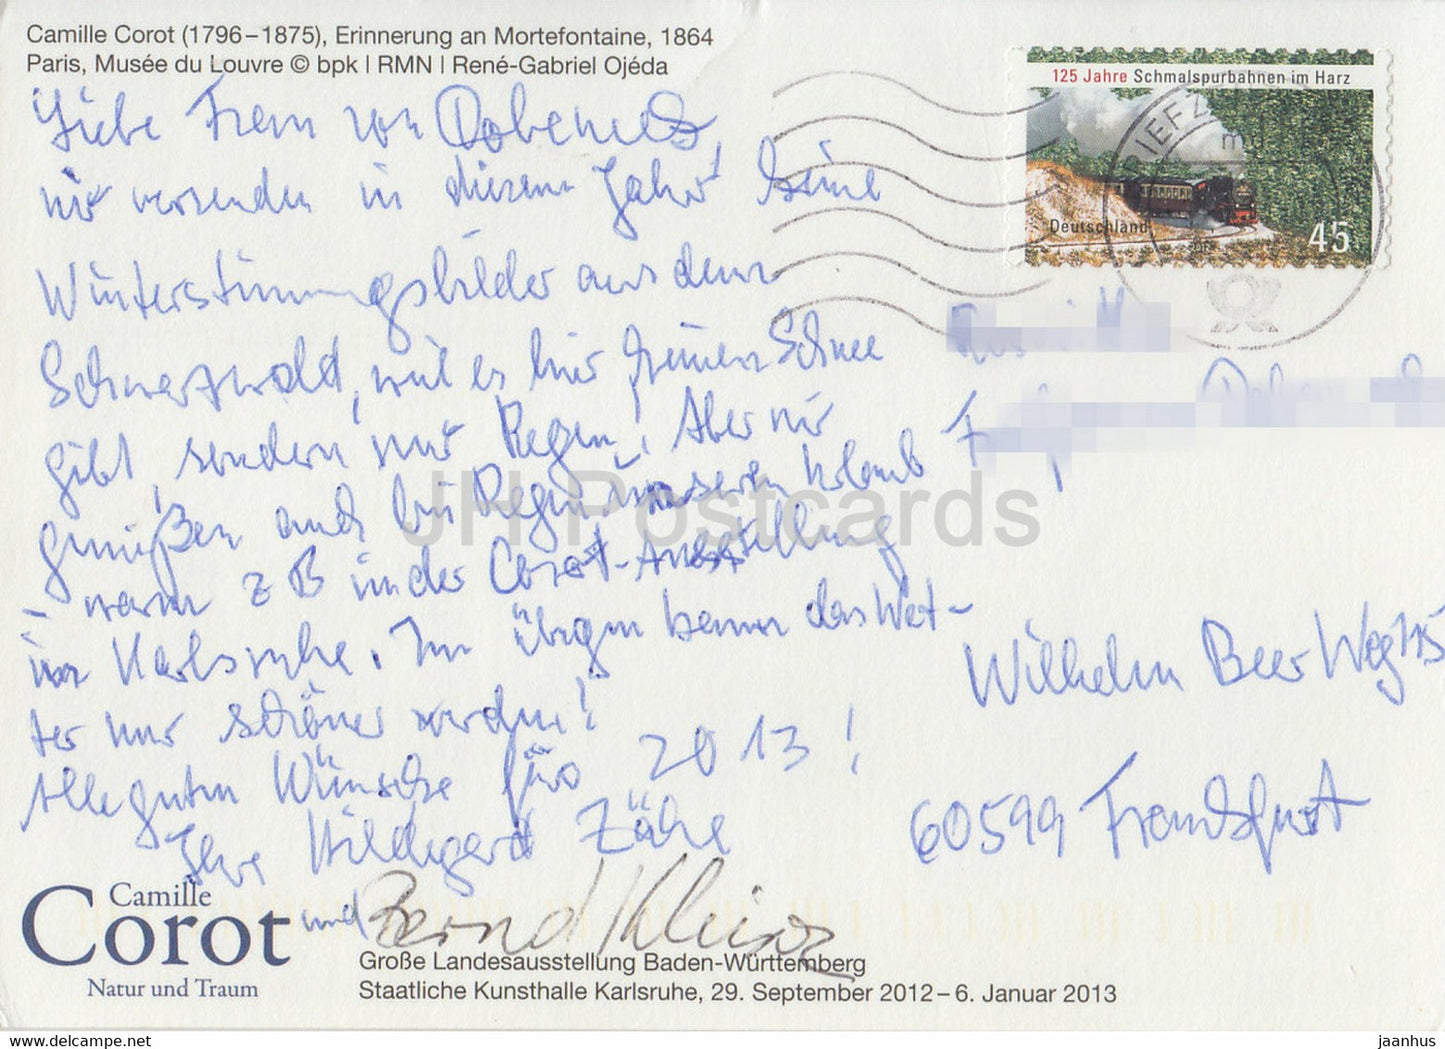 Camille Corot (1796–1875), Erinnerung an Mortefontaine, 1864
Paris, Musée du Louvre © bpk | RMN | René-Gabriel Ojéda
125 Jahre Schmalspurbahnen im Harz
Deutschland
45
Liebe Frau von
wir versenden in diesem Jahr keine
Winterstimmungsbilder aus dem
Schwarzwald, weil es hier keinen Schnee
gibt, sondern nur Regen! Aber wir
genießen auch bei Regen unseren Urlaub
– warm z B in der Corot-Ausstellung
in Karlsruhe. Im übrigen kann das Wet-
ter nur schöner werden!
Alle guten Wünsche für 2013!
Ihre Hildegard
und Bernd
Wilhelm Beer Weg
60599 Frankfurt
JH Postcards
Camille
Corot
Natur und Traum
Große Landesausstellung Baden-Württemberg
Staatliche Kunsthalle Karlsruhe, 29. September 2012–6. Januar 2013
www.delcampe.net
jaanhus